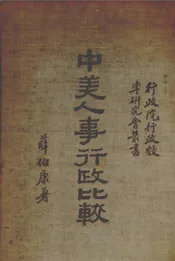 行政院行政效
率研究會叢書
中美人事行政比較
薛伯康著